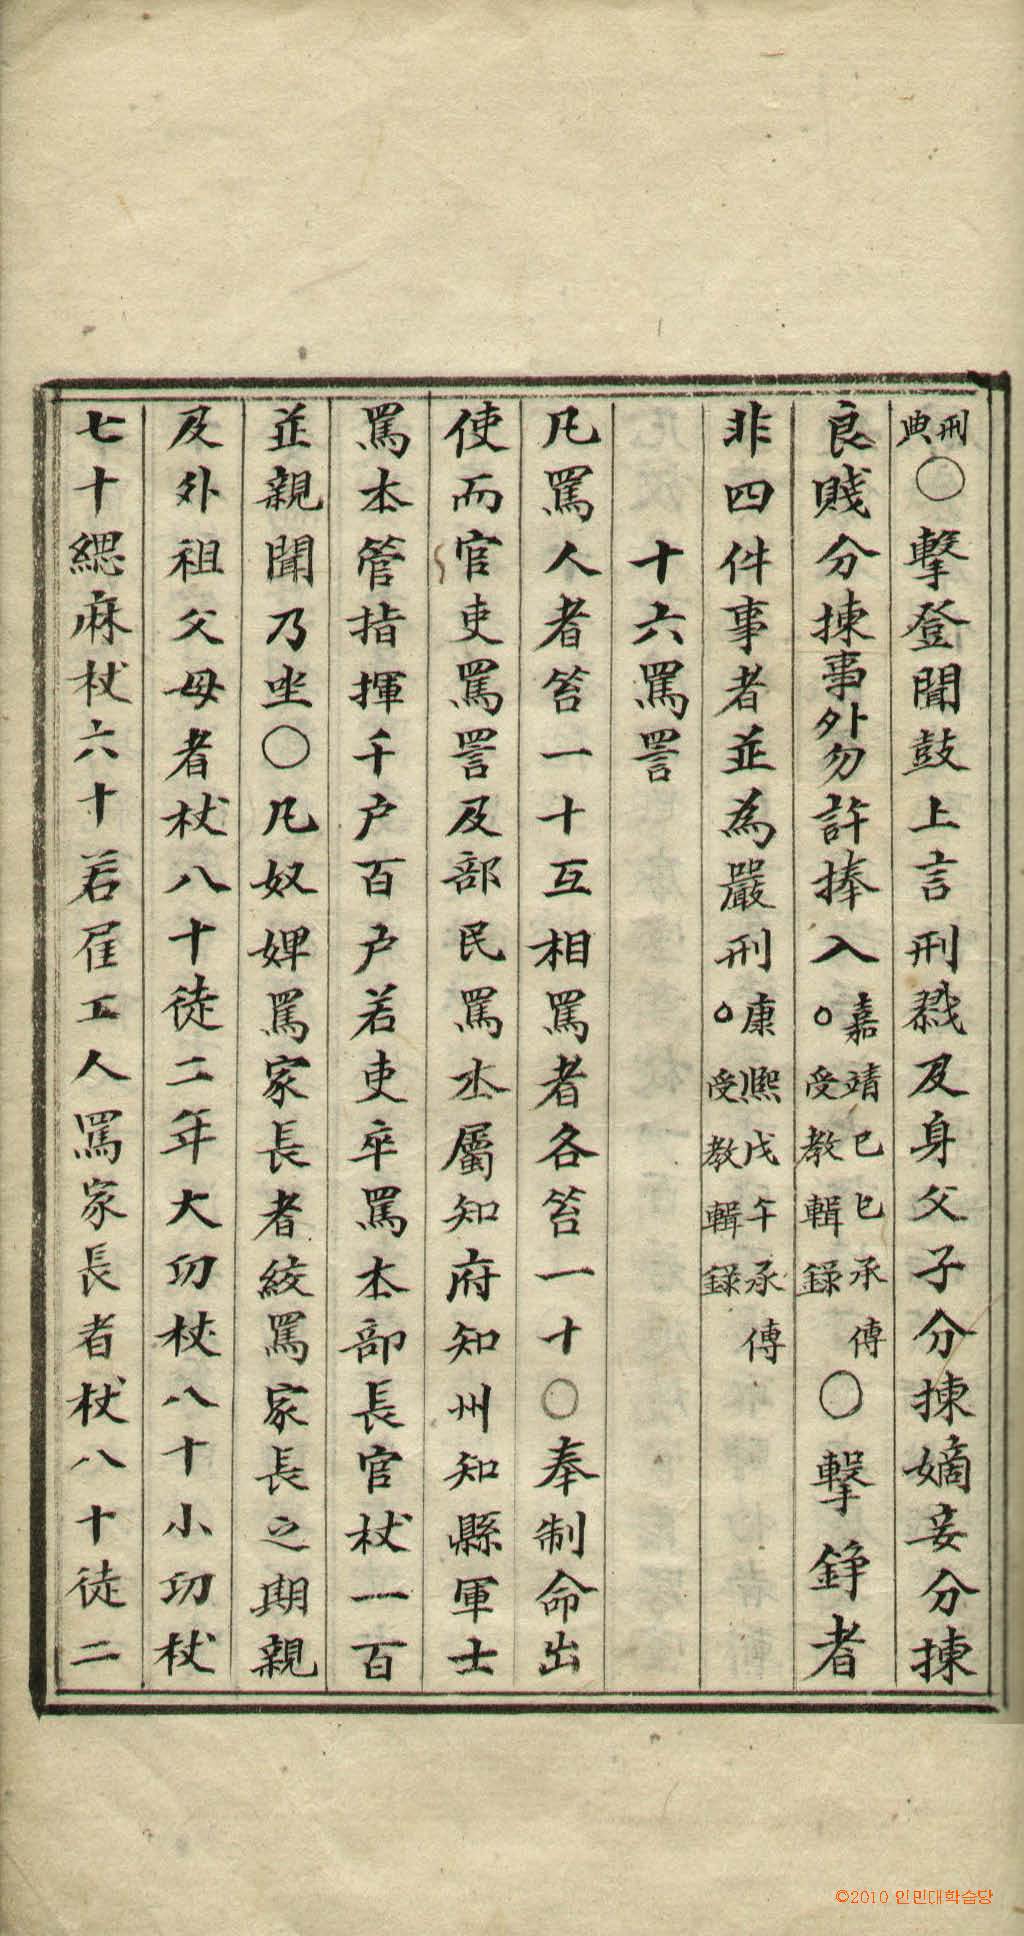 刑典○擊登聞鼓上言刑戮及身父子分揀嫡妾分揀
良賤分揀事外勿許捧入嘉靖己巳承傳○受教輯錄○擊錚者
非四件事者並為嚴刑康熙戊午承傳○受教輯錄
十六罵詈
凡罵人者笞一十互相罵者各笞一十○奉制命出
使而官吏罵詈及部民罵本屬知府知州知縣軍士
罵本管指揮千户百户若吏卒罵本部長官杖一百
並親聞乃坐○凡奴婢罵家長者絞罵家長之期親
及外祖父母者杖八十徒二年大功杖八十小功杖
七十緦麻杖六十若雇工人罵家長者杖八十徒二
©2010 인민대학습당